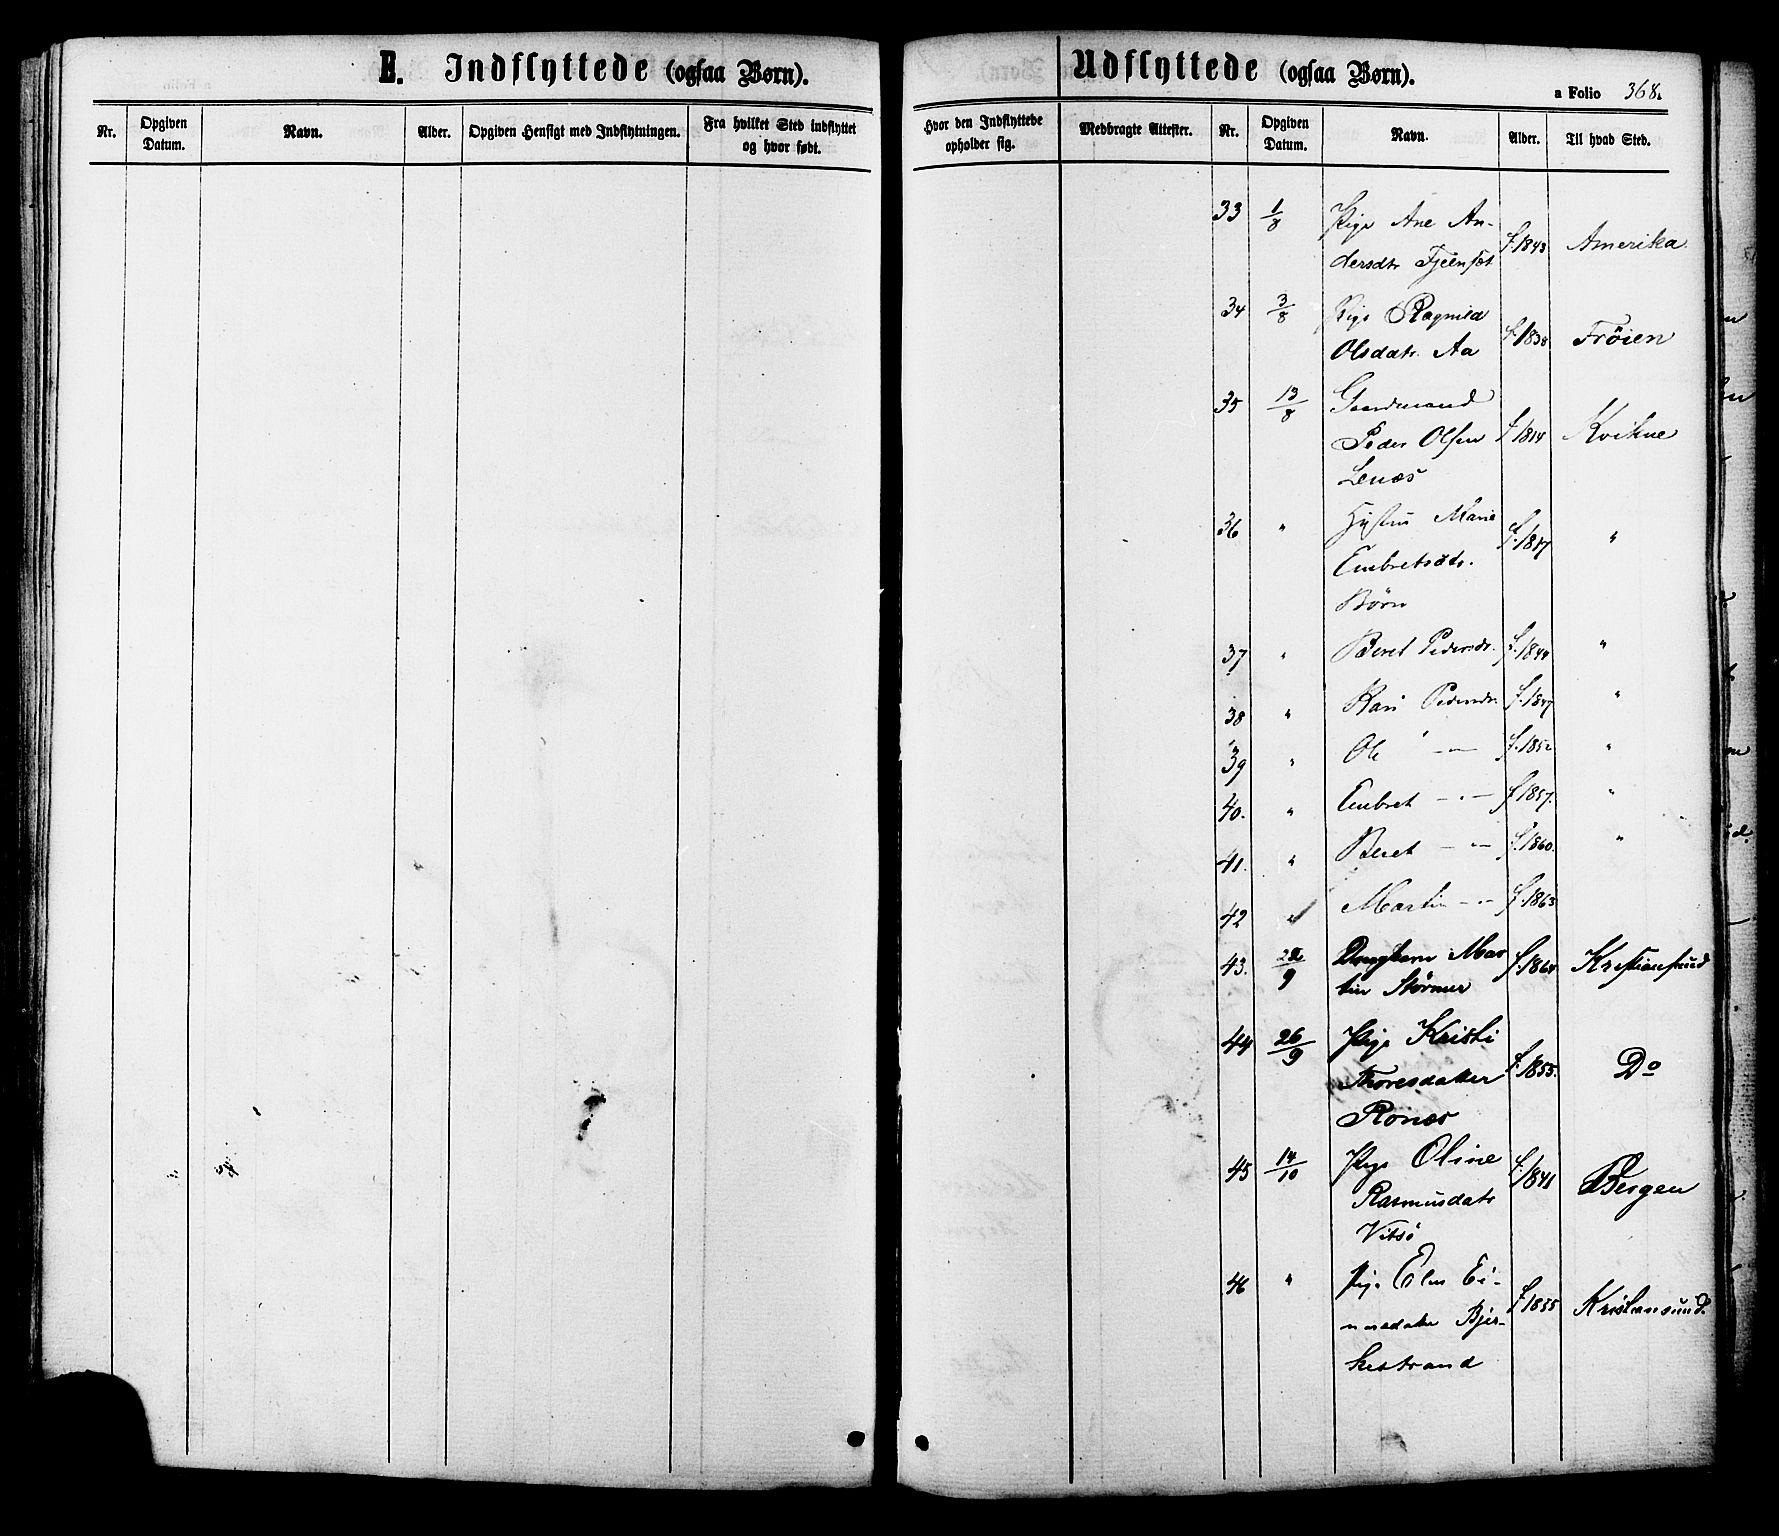 E. Indflyttede (ogsaa Børn).
Nr. Opgiven Datum. Navn. Alder. Opgiven Hensigt med Indflytningen. Fra hvilket Sted indflyttet og hvor født.
Udflyttede (ogsaa Børn).
a Folio 368.
Hvor den Indflyttede opholder sig. Medbragte Attester. Nr. Opgiven Datum. Navn. Alder. Til hvad Sted.
33 1/8 Pige Ane An-
dersdtr f. 1843 Amerika
34 3/8 Pige Ragnild
Olsdatr. Aa f. 1838 Frøien
35 13/8 Gaardmand
Peder Olsen f. 1814 Kvikne
Lenæs
36 " Hustru Marie
Embretsdtr. f. 1817 "
Børn
37 " Beret Pedersdr. f. 1844 "
38 " Kari Pedersdr. f. 1847 "
39 " Ole " — f. 1852 "
40. " Embret — " — f. 1857. "
41. " Beret — " — f. 1860. "
42 " Martin — " — f. 1863
43. 22/9 Mar
tin Størmer f. 1864 Kristiansund
44 26/9 Pige Kristi
Thoresdatter f. 1855. Do
Rønæs
45 14/10 Pige Oline
Rasmusdatr f. 1841 Bergen
Vitsø
46 " Pige Ei-
narsdatter Bjer- f. 1855 Kristiansund.
kestrand